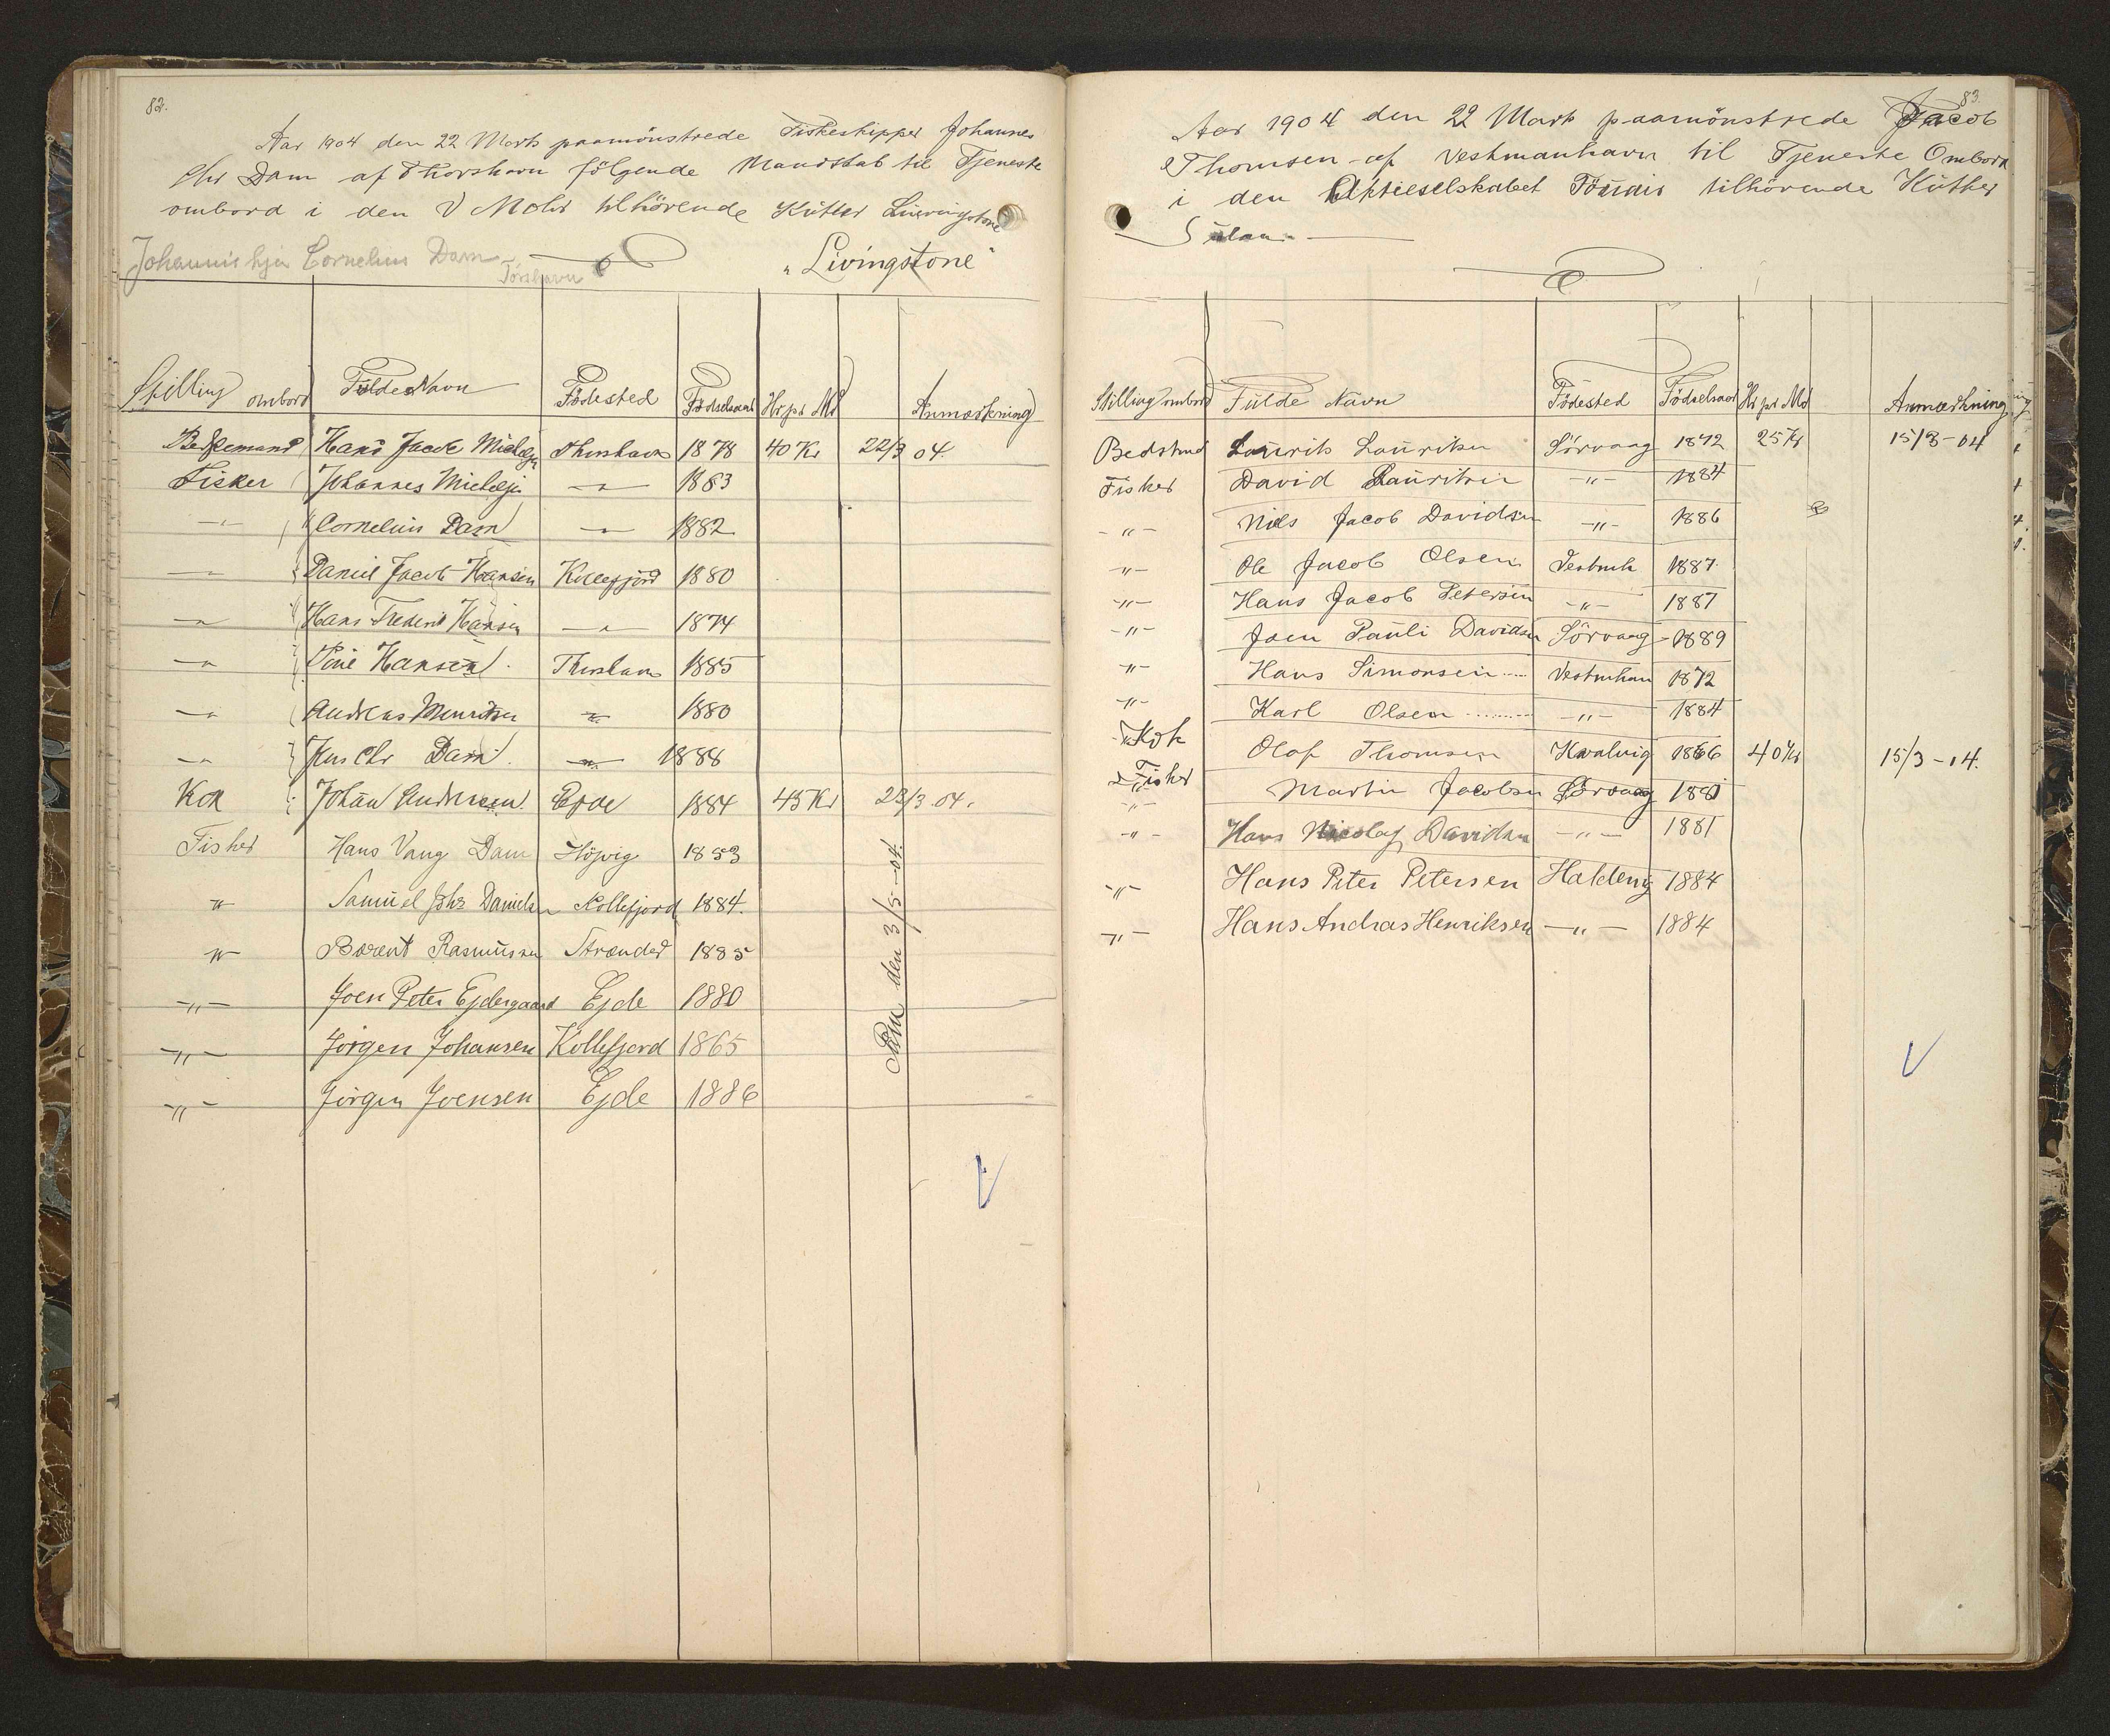 82.
Aar 1904 den 22 Marts paamönstrede Fiskeskipper Johannes
Chr Dam af Thorshavn fölgende Mandskab til Tjeneste
ombord i den V Mohr tilhörende Kutter Livingstone
Johannis hja Cornelius Dam
Tórshavn
"Livingstone"
Stilling ombord Fulde Navn Födested Födselsaar Kr pr Md Anmærkning
Bedstemand Hans Jacob Thorshavn 1878 40 Kr 22/3 04.
Fisker Johannes -"- 1883
-"- Cornelius Dam -"- 1882
-"- Daniel Jacob Hansen Kollefjord 1880
-"- Hans Frederik Hansen -"- 1874
-"- Hansen Thorshavn 1885
-"- Andreas -"- 1880
-"- Jens Chr Dam -"- 1888
Kok Johan Andreasen Ejde 1884 45 Kr 22/3 04.
Fisker Hans Vang Dam Höjvig 1853
-"- Samuel Johs Danielsen Kollefjord 1884.
-"- Berent Rasmussen Strender 1885
-"- Joen Peter Ejdesgaard Ejde 1880
-"- Jörgen Johansen Kollefjord 1865
-"- Jörgen Joensen Ejde 1886
den 3/5-04.
83.
Aar 1904 den 22 Mart paamönstrede Jacob
Thomsen af Vestmanhavn til Tjeneste Ombord
i den Aktieselskabet tilhörende Kutter
Sulan
Stilling ombord Fulde Navn Födested Födselsaar Kr pr Md Anmærkning
Bedstmd Laurits Lauritsen Sörvaag 1872 25 Kr 15/3-04
Fisker David Lauritsen -"- 1884
-"- Niels Jacob Davidsen -"- 1886
-"- Ole Jacob Olsen Vestmh 1887
-"- Hans Jacob Petersen -"- 1887
-"- Joen Pauli Davidsen Sörvaag 1889
-"- Hans Simonsen Vestmhan 1872
-"- Karl Olsen -"- 1884
Kok Olaf Thomsen Kvalvig 1866 40 Kr 15/3-04.
Fisker Martin Jacobsen Sörvaag 1881
-"- Hans Nicolaj Davidsen -"- 1881
-"- Hans Peter Petersen Haldervig 1884
-"- Hans Andras Henriksen -"- 1884